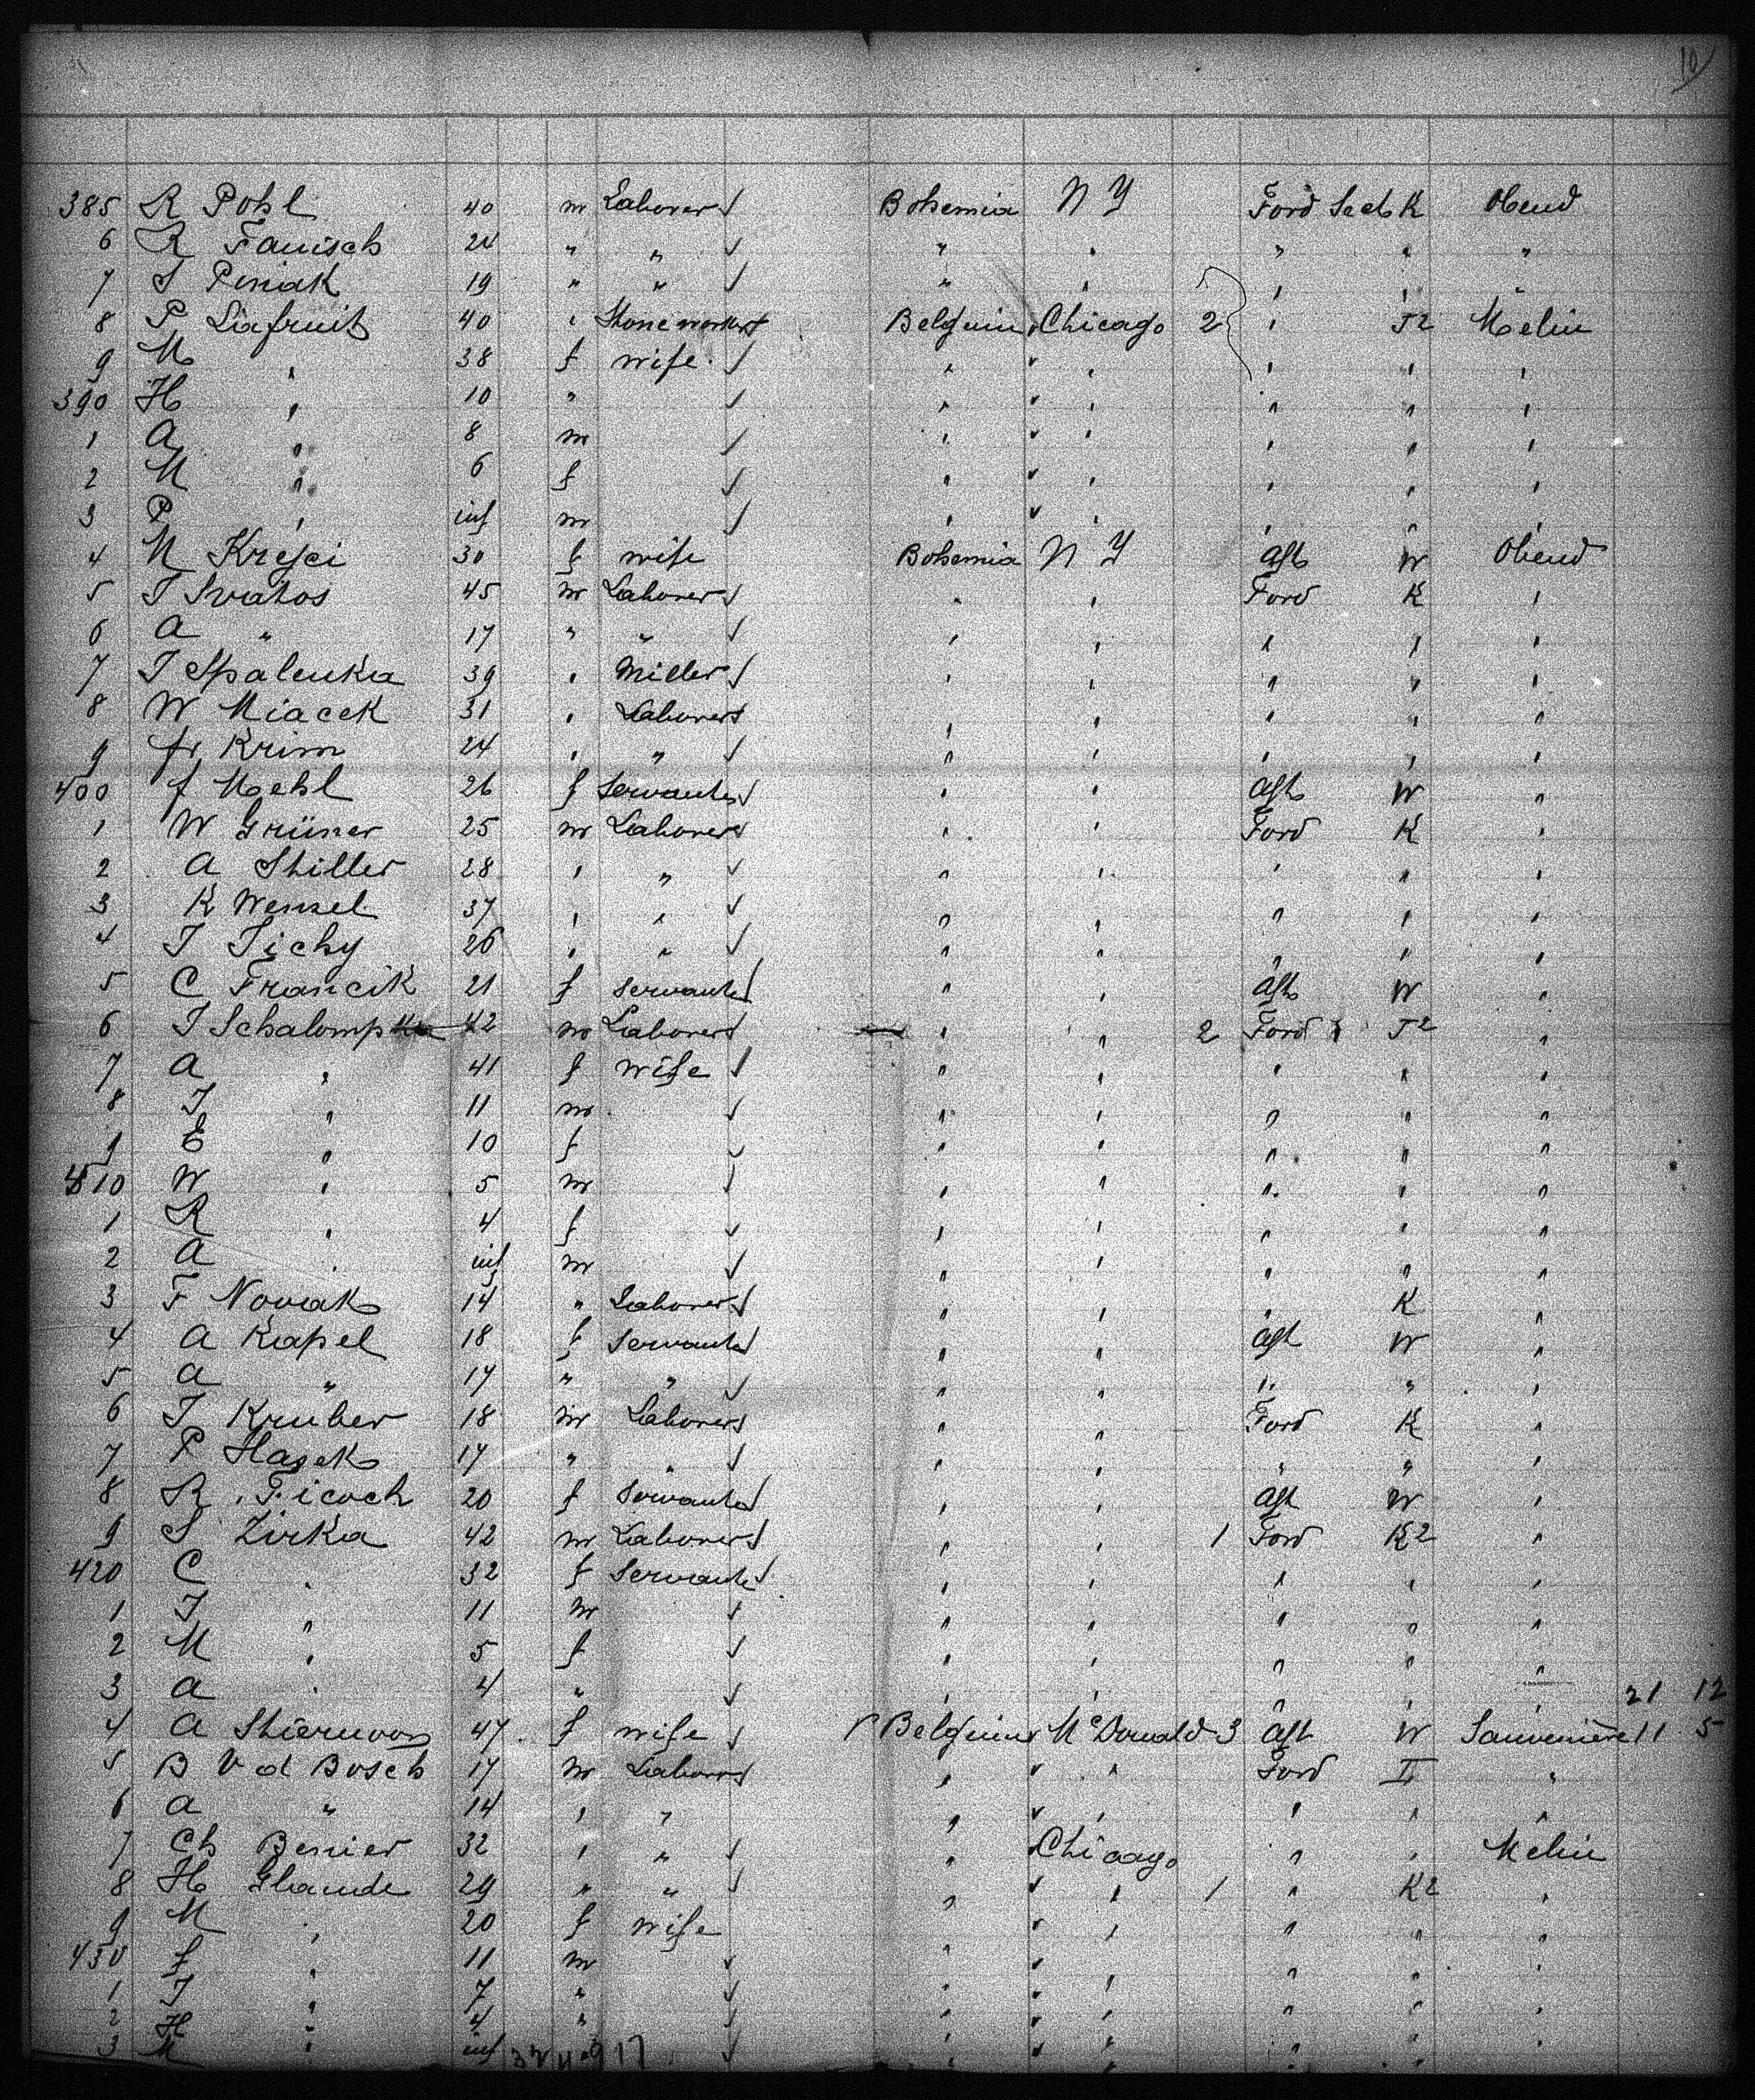 10
385 R Pohl 40 m Laborer Bohemia N Y Ford Sect K Obend
6 R Fanisch 24 " " " " " " "
7 S Peniak 19 " " " " " " "
8 P Liafruit 40 " Stoneworker Belgium Chicago 2 " T2 Melin
9 M " 38 f wife " " " " "
390 H " 10 " " " " " "
1 A " 8 m " " " " "
2 M " 6 f " " " " "
3 P " inf m " " " " "
4 M Krejci 30 f wife Bohemia N Y Aft W Obend
5 J Svatos 45 m Laborer " " Ford K "
6 A " 17 " " " " " " "
7 J Spalenka 39 " Miller " " " " "
8 W Miacek 31 " Laborer " " " " "
9 Fr Krim 24 " " " " " " "
400 J Mehl 26 f Servante " " Aft W "
1 W Grüner 25 m Laborer " " Ford K "
2 A Shiller 28 " " " " " " "
3 K Wenzel 37 " " " " " " "
4 J Tichy 26 " " " " " " "
5 C Francik 21 f Servante " " Aft W "
6 J Schalomp 42 m Laborer " " 2 Ford " T2 "
7 A " 41 f wife " " " " "
8 J " 11 m " " " " "
9 E " 10 f " " " " "
410 W " 5 m " " " " "
1 R " 4 f " " " " "
2 A " inf m " " " " "
3 F Novak 14 " Laborer " " " K "
4 A Kapel 18 f Servante " " Aft W "
5 A " 17 " " " " " " "
6 J Kruber 18 m Laborer " " Ford K "
7 P Hasek 17 " " " " " " "
8 R Ficoch 20 f Servante " " Aft W "
9 S Zirka 42 m Laborer " " 1 Ford K2 "
420 C " 32 f Servante " " " " "
1 J " 11 m " " " " "
2 M " 5 f " " " " "
3 A " 4 " " " " " " 21 12
4 A Shiernoon 47 f wife Belgium Mc Donald 3 Aft W Sauvenière 11 5
5 B V d Bosch 17 m Laborer " " " Ford II "
6 A " 14 " " " " " " "
7 Ch Benier 32 " " " Chicago " " Melin
8 H Glaude 29 " " " " 1 " K2 "
9 M " 20 f wife " " " " "
430 J " 11 m " " " " "
1 J " 7 " " " " " "
2 H " 4 " " " " " "
3 M " inf " " " " "